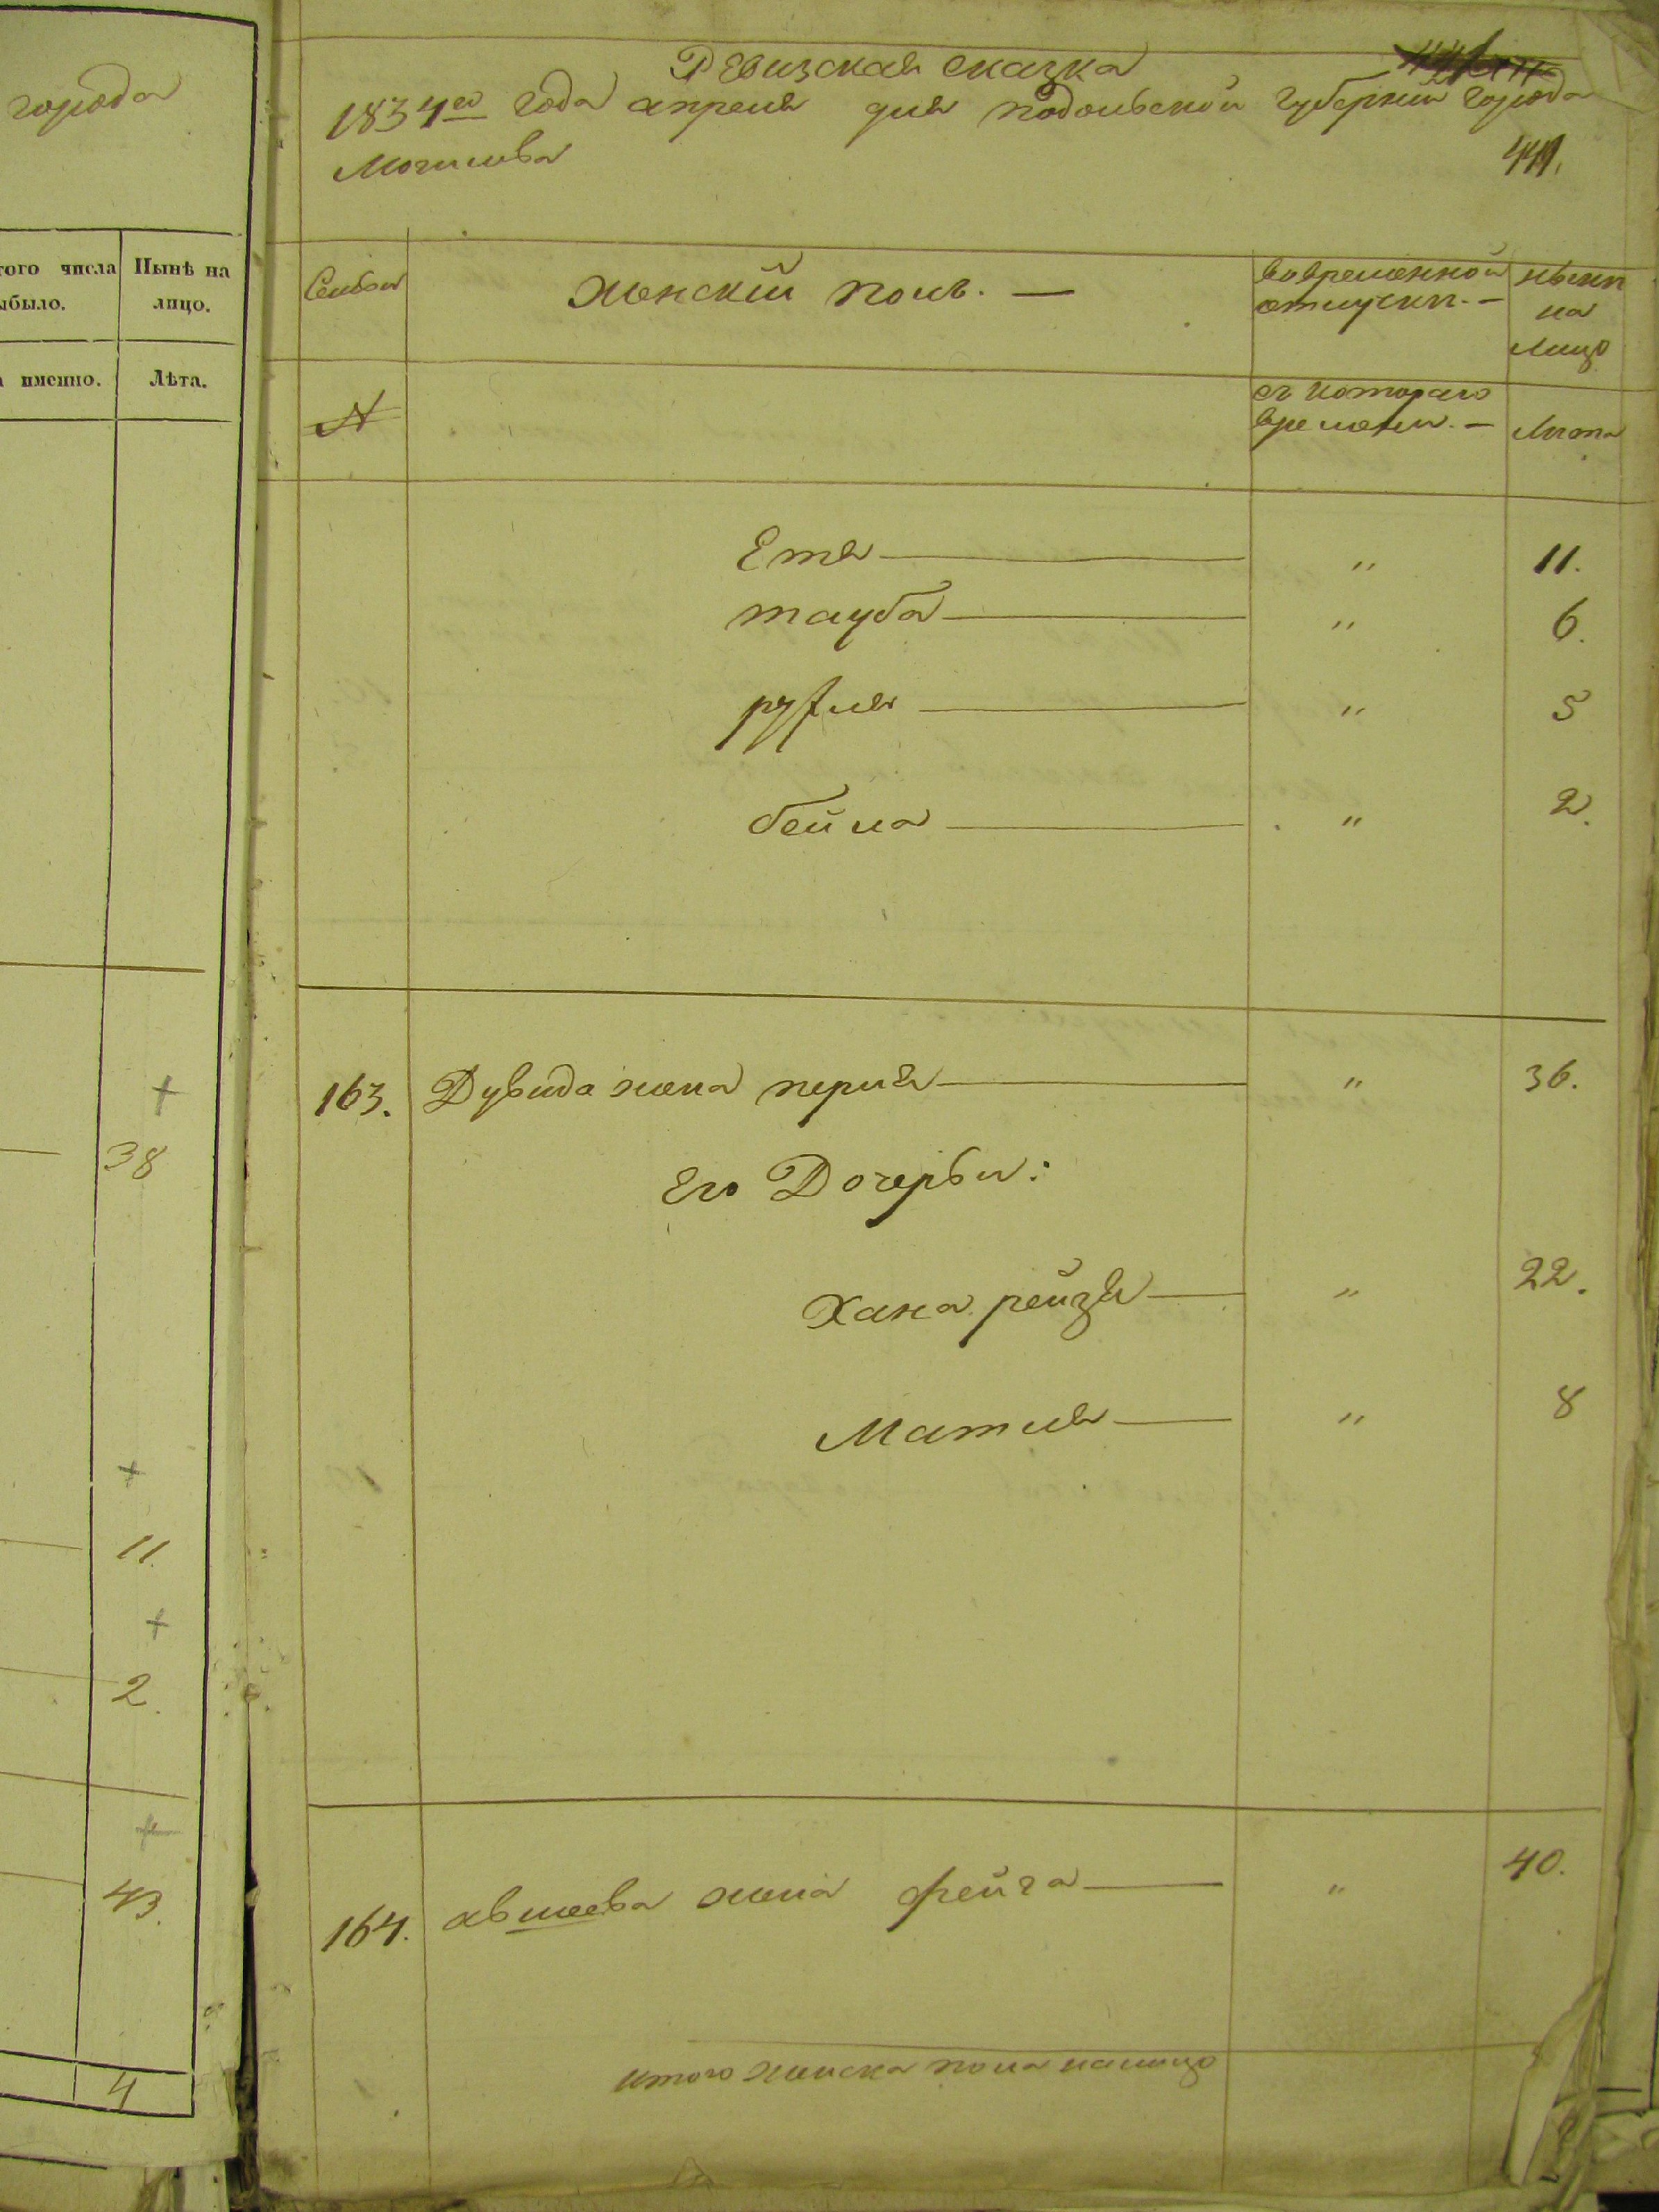 города
того числа
Нынѣ на
ыбыло.
лицо.
а именно.
Лѣта.
38
11.
2.
43.
4
Ревизская сказка
1834го года апреля дня подольской губернии города
Могилева
441.
Семьи
женскій полъ. —
вовременной
отлучки. —
ныни
на
лицо
№
съ котораго
времени. —
лита
Етя — " 11.
тауба — " 6.
рухля — " 5
бейла — " 2.
163. Дувида жена перля — " 36.
Его Дочерьи:
Хана рейзя — " 22.
Матля — " 8
164. авшеева жена фейга — " 40.
итого женска пола налицо